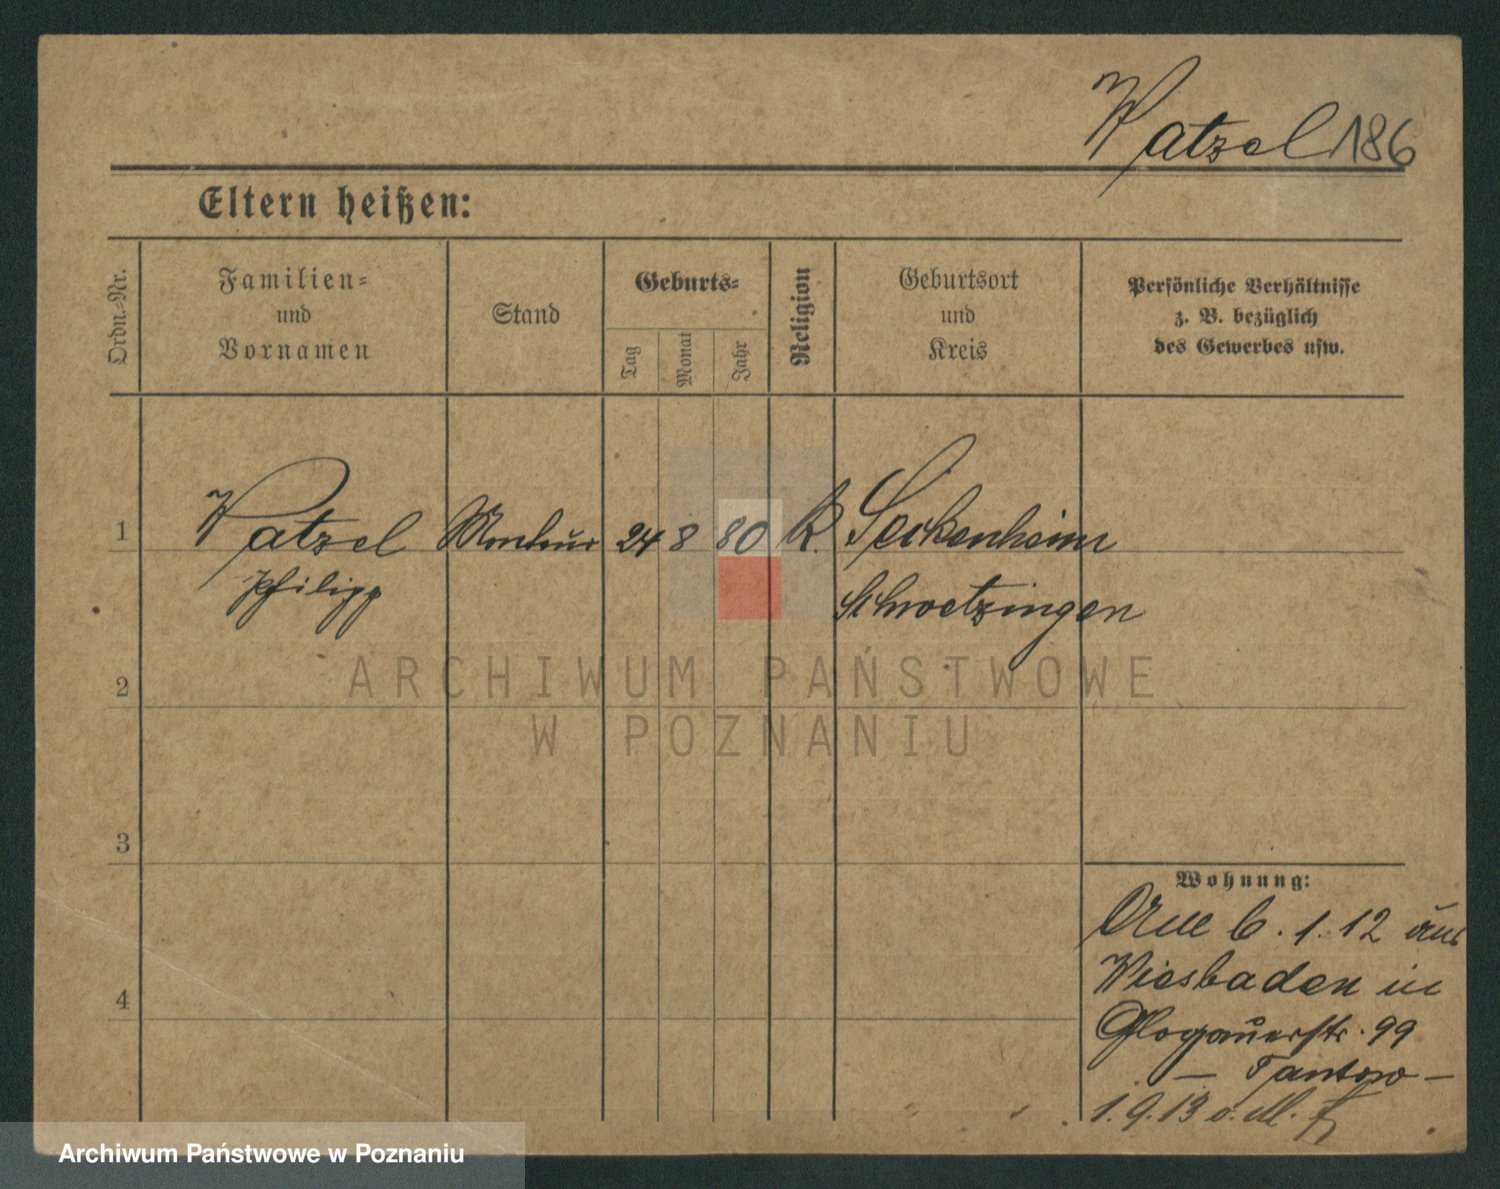 Watzel 186
Eltern heißen:
Ordn.-Nr.
Familien-
und
Vornamen
Stand
Geburts-
Tag
Monat
Jahr
Religion
Geburtsort
und
Kreis
Persönliche Verhältnisse
z. B. bezüglich
des Gewerbes usw.
1 Watzel Monteur 24 8 80 K. Seckenheim
Philipp Schwetzingen
ARCHIWUM PAŃSTWOWE
2
W POZNANIU
3
Wohnung:
6.1.12 aus
Wiesbaden in
4
Glogauerstr. 99
— Tantow —
1.9.13 o. M.
Archiwum Państwowe w Poznaniu